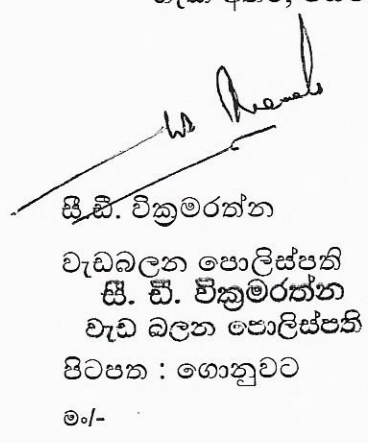 සී.ඩී. වික්‍රමරත්න
වැඩබලන පොලිස්පති
සී. ඩී. වික්‍රමරත්න
වැඩ බලන පොලිස්පති
පිටපත : ගොනුවට
මං/-